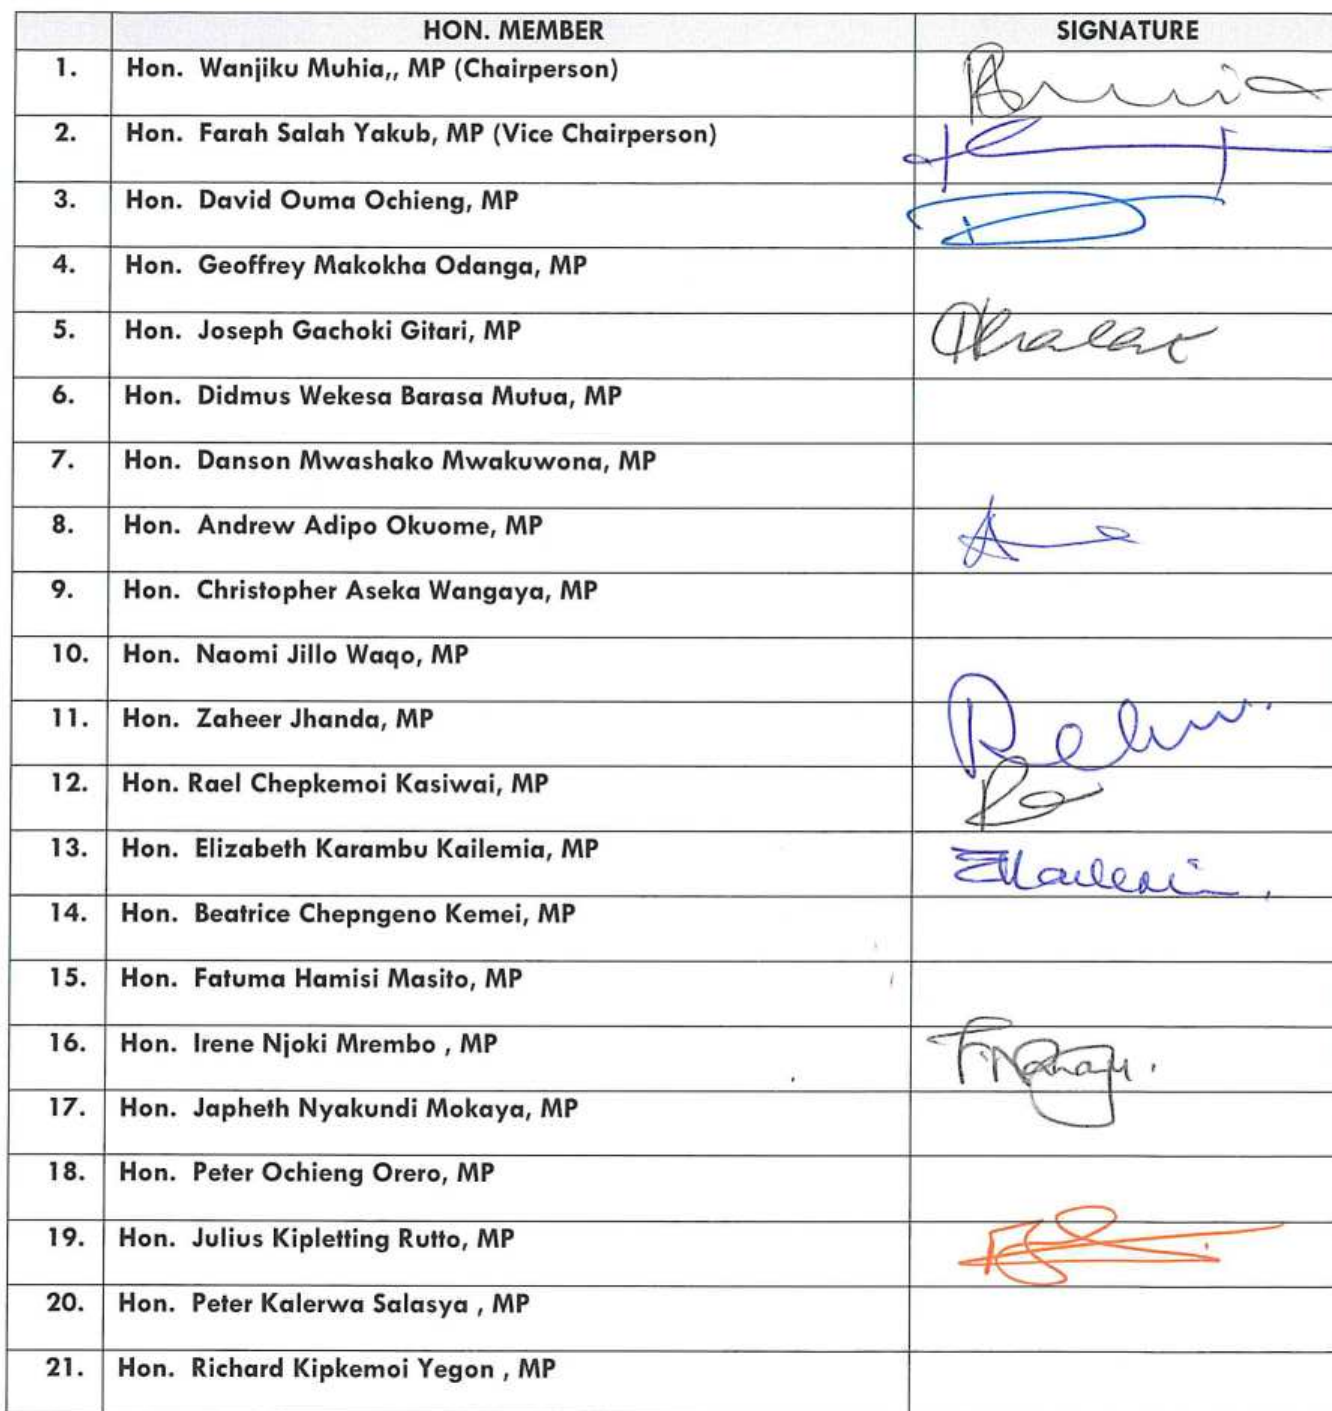 HON. MEMBER SIGNATURE
1. Hon. Wanjiku Muhia,, MP (Chairperson)
2. Hon. Farah Salah Yakub, MP (Vice Chairperson)
3. Hon. David Ouma Ochieng, MP
4. Hon. Geoffrey Makokha Odanga, MP
5. Hon. Joseph Gachoki Gitari, MP
6. Hon. Didmus Wekesa Barasa Mutua, MP
7. Hon. Danson Mwashako Mwakuwona, MP
8. Hon. Andrew Adipo Okuome, MP
9. Hon. Christopher Aseka Wangaya, MP
10. Hon. Naomi Jillo Waqo, MP
11. Hon. Zaheer Jhanda, MP
12. Hon. Rael Chepkemoi Kasiwai, MP
13. Hon. Elizabeth Karambu Kailemia, MP
14. Hon. Beatrice Chepngeno Kemei, MP
15. Hon. Fatuma Hamisi Masito, MP
16. Hon. Irene Njoki Mrembo , MP
17. Hon. Japheth Nyakundi Mokaya, MP
18. Hon. Peter Ochieng Orero, MP
19. Hon. Julius Kipletting Rutto, MP
20. Hon. Peter Kalerwa Salasya , MP
21. Hon. Richard Kipkemoi Yegon , MP